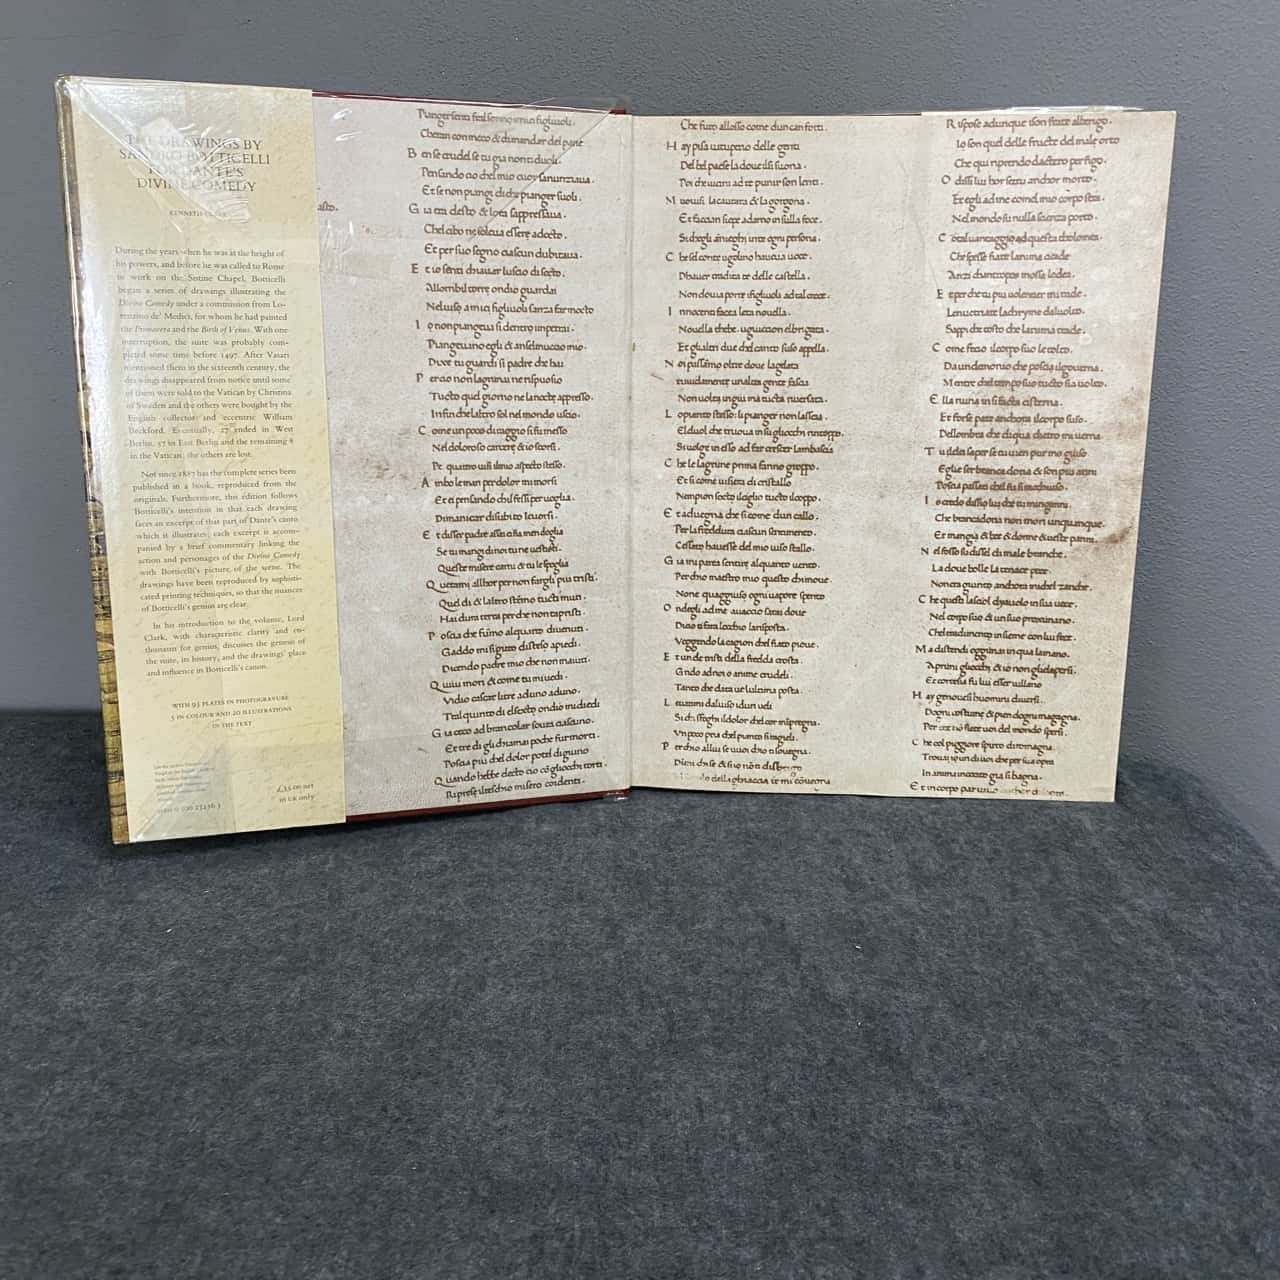 THE DRAWINGS BY
SANDRO BOTTICELLI
FOR DANTE'S
DIVINE COMEDY
KENNETH CLARK
During the years when he was at the height of
his powers, and before he was called to Rome
to work on the Sistine Chapel, Botticelli
began a series of drawings illustrating the
Divine Comedy under a commission from Lo-
renzino de' Medici, for whom he had painted
the Primavera and the Birth of Venus. With one
interruption, the suite was probably com-
pleted some time before 1497. After Vasari
mentioned them in the sixteenth century, the
drawings disappeared from notice until some
of them were sold to the Vatican by Christina
of Sweden and the others were bought by the
English collector and eccentric William
Beckford. Eventually, 27 ended in West
Berlin, 57 in East Berlin and the remaining 8
in the Vatican; the others are lost.
Not since 1887 has the complete series been
published in a book, reproduced from the
originals. Furthermore, this edition follows
Botticelli's intention in that each drawing
faces an excerpt of that part of Dante's canto
which it illustrates; each excerpt is accom-
panied by a brief commentary linking the
action and personages of the Divine Comedy
with Botticelli's picture of the scene. The
drawings have been reproduced by sophisti-
cated printing techniques, so that the nuances
of Botticelli's genius are clear.
In his introduction to the volume, Lord
Clark, with characteristic clarity and en-
thusiasm for genius, discusses the genesis of
the suite, its history, and the drawings' place
and influence in Botticelli's canon.
WITH 93 PLATES IN PHOTOGRAVURE
5 IN COLOUR AND 20 ILLUSTRATIONS
IN THE TEXT
£35.00 net
in UK only
Pianger senti
Cheran con meco & dimandar del pane
Ben se crudel se tu gia non ti duoli
Pensando cio chel mio cuor sanunziaua.
Et se non piangi di che pianger suoli.
Gia eran desto & lora sappressaua.
Chel cibo ne soleua essere adocto.
Et per suo segno ciascun dubitaua.
Et io senti chiauar luscio disocto.
Allorribil torre ondio guardai
Nel uiso a miei figliuoli sanza far mocto
Io non piangeua si dentro impetrai.
Piangeuano egli & anselmuccio mio.
Dixe tu guardi si padre che hai
Percio non lagrimai ne rispuosio
Tucto quel giorno ne lanocte appresso.
Infin che laltro sol nel mondo uscio.
Come un poco di raggio si fu messo
Nel doloroso carcere & io scorsi.
Per quattro uisi ilmio aspecto stesso.
Ambo le man per dolor mi morsi
Et ei pensando chil fessi per uoglia.
Dimanicar disubito leuorsi.
Et disser padre assai cifia men doglia
Se tu mangi di noi tu ne uestisti.
Queste misere carni & tu le spoglia
Quetami allhor per non fargli piu tristi.
Quel di & laltro stemo tucti muti.
Hai dura terra perche non tapristi.
Poscia che fumo al quarto di uenuti.
Gaddo mi si gitto disteso apiedi.
Dicendo padre mio che non maiuti.
Quiui mori & come tu mi uedi.
Vidio cascar litre aduno aduno.
Tral quinto di elsexto ondio mi diedi
Gia cieco ad brancolar soura ciascuno.
Et tre di gli chiamai poche fur morti.
Poscia piu chel dolor pote il digiuno
Quando hebbe decto cio co gliocchi torti.
Riprese ilteschio misero codenti.
Che furo allosso come duncan forti.
Hay pisa uituperio delle genti
Del bel paese la doue ilsi suona.
Poi che uicini ad te punir son lenti.
Muouasi la capraia & la gorgona.
Et faccian siepe adarno in sulla foce.
Si chegli anieghi inte ogni persona.
Che sel conte ugolino haueua uoce.
Dhauer tradita te delle castella.
Non doueui porre ifigliuoli ad tal croce.
Innocenti facea leta nouella.
Nouella thebe. uguiccion elbrigata.
Et glialtri due chel canto suso appella.
Noi passamo oltre doue lagelata
ruuidamente unaltra gente fascia
Non uolta ingiu ma tucta riuersata.
Lo pianto stesso li pianger non lascia.
El duol che truoua in su gliocchi rintoppo.
Si uolge in esso ad far crescer lambascia
Che le lagrime prima fanno groppo.
Et si come uisiera di cristallo
Riempion socto ilciglio tucto ilcoppo.
Et aduegna che si come dun callo.
Per la freddura ciascun sentimento.
Cessato hauesse del mio uiso stallo.
Gia mi parea sentire alquanto uento.
Perchio maestro mio questo chi moue.
None quaggiuso ogni uapore spento
Ondegli ad me auaccio sarai doue
Dicio ti fara locchio larisposta.
Veggendo la cagion chel fiato pioue.
Et un de tristi della fredda crosta.
Grido ad noi o anime crudeli.
Tanto che data ue lultima posta.
Leuatimi dal uiso i duri ueli
Si chi sfoghi ildolor chel cor mipregna.
Vn poco pria chel pianto siraggieli.
Perchio allui se uuoi chio ti souegna.
Dimi chi se & sio non ti disbrigo
della ghiaccia ir mi conuegna
Rispose adunque ison frate alberigo.
Io son quel delle fructe del male orto
Che qui riprendo dactero per figo.
O dissi lui hor settu anchor morto.
Et egli ad me comel mio corpo stea.
Nel mondo su nulla scienza porto.
Cotal uantaggio ad questa tholomea.
Che spesse fiate lanima cade
Anzi chantropos mossa ledea.
Et perche tu piu uolentier mi rade.
Leinuetriate lachryme dal uolto.
Sappi che tosto che lanima trade.
Come fecio ilcorpo suo le tolto.
Da un demonio che poscia ilgouerna.
Mentre chel tempo suo tucto sia uolto.
Ella ruina in si facta cisterna.
Et forse pare anchora ilcorpo suso.
Dellombra che diqua dietro mi uerna
Tu ildei saper se tu uien pur mo giuso
Egli e ser branca doria & son piu anni
Poscia passati chel fu si rinchiuso.
Io credo dissio lui che tu minganni.
Che brancadoria non mori unquanque.
Et mangia & bee & dorme & ueste panni.
Nel fosso su dissel di male branche.
La doue bolle la tenace pece.
Non era giunto anchora michel zanche.
Che questi lascio ildyauolo in sua uece.
Nel corpo suo & un suo proximano.
Chel tradimento insieme con lui fece.
Ma distendi oggimai in qua lamano.
Aprimi gliocchi & io non gliel apersi.
Et cortesia fu lui esser uillano
Hay genouesi huomini diuersi.
Dogni costume & pien dogni magagna.
Perche non siete uoi del mondo spersi.
Che col piggiore spirto di romagna
Trouai un di uoi che per sua opra
In anima in cocito gia si bagna.
Et in corpo par uiuo